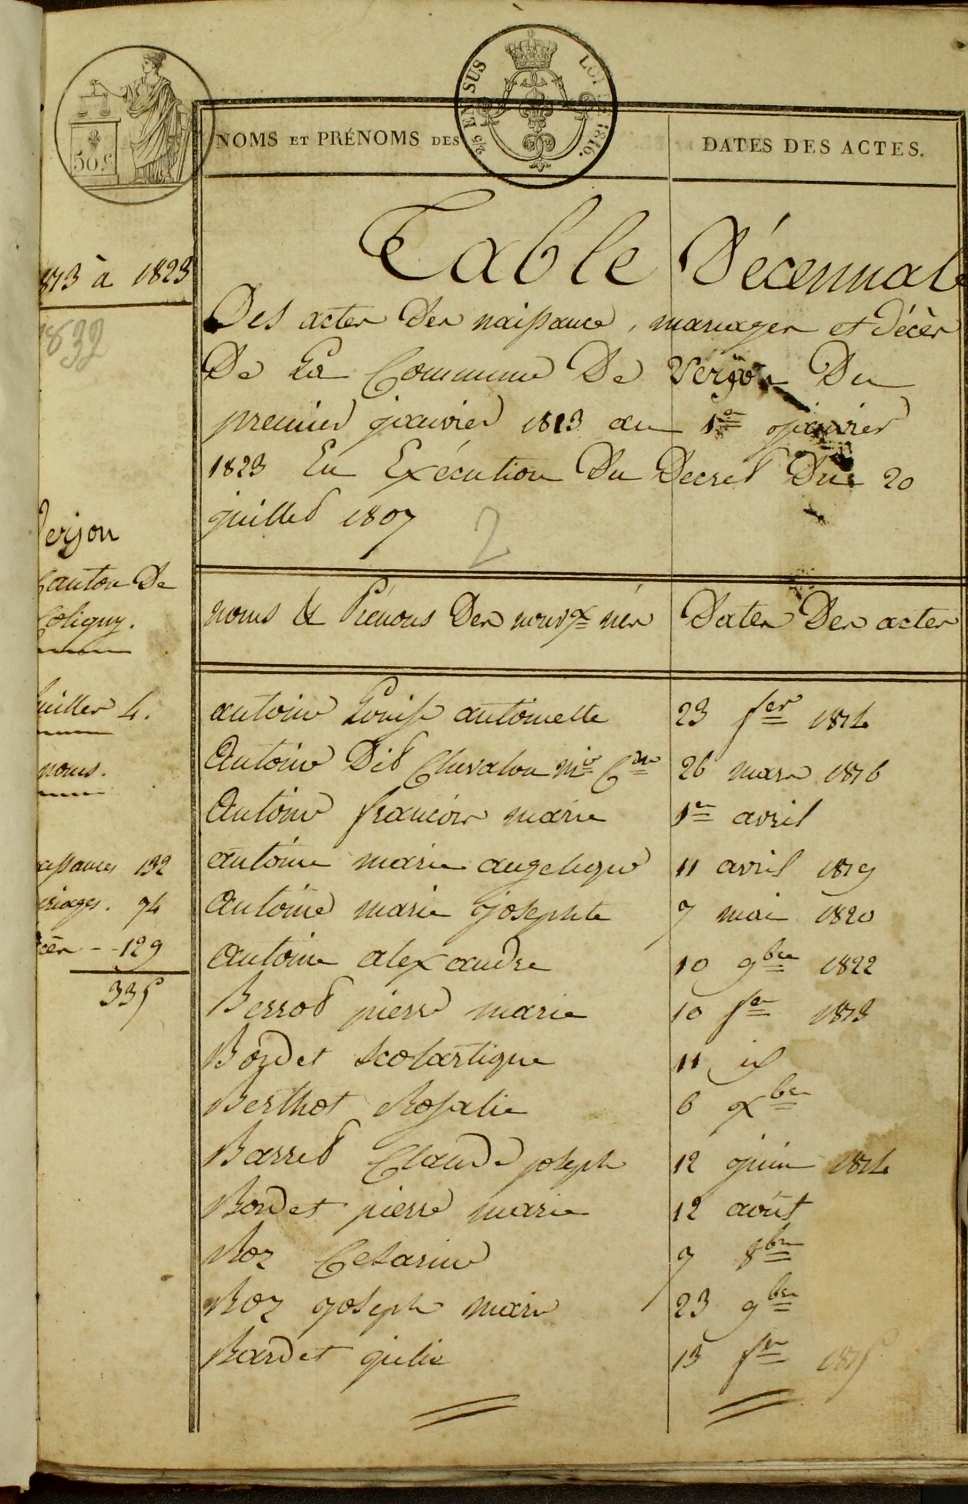 50 c
EN SUS
LOI DE 1816.
NOMS ET PRÉNOMS DES
DATES DES ACTES.
1813 à 1823
1832
Verjon
Canton De
Coligny.
feuilles 4.
noms.
naissances 132
mariages. 74
décèr -- 129
335
Table Décennale
Des acter Der naissance, mariager et décèr
De La Commune De Verjon Du
premier janvier 1813 au 1er janvier
1823 En Exécution Du Decret Du 20
juillet 1807
2
noms & Prénoms Der nouvx nér Dater Der acter
antoine Louise antoinette 23 fer 1814
Antoine Dit Chevalon mie 26 marr 1816
Antoine françoir marie 1er avril
antoine marie angelique 11 avril 1819
Antoine marie josephte 7 mai 1820
Antoine alexandre 10 9bre 1822
Berrod pierre marie 10 fer 1813
Bordet scolastique 11 id
Berthot Rosalie 6 xbre
Barred Claude joseph 12 juin 1814
Bordet pierre marie 12 août
Boz Cesarine 7 8bre
Boz joseph marie 23 9bre
Bardet julie 13 fer 1815